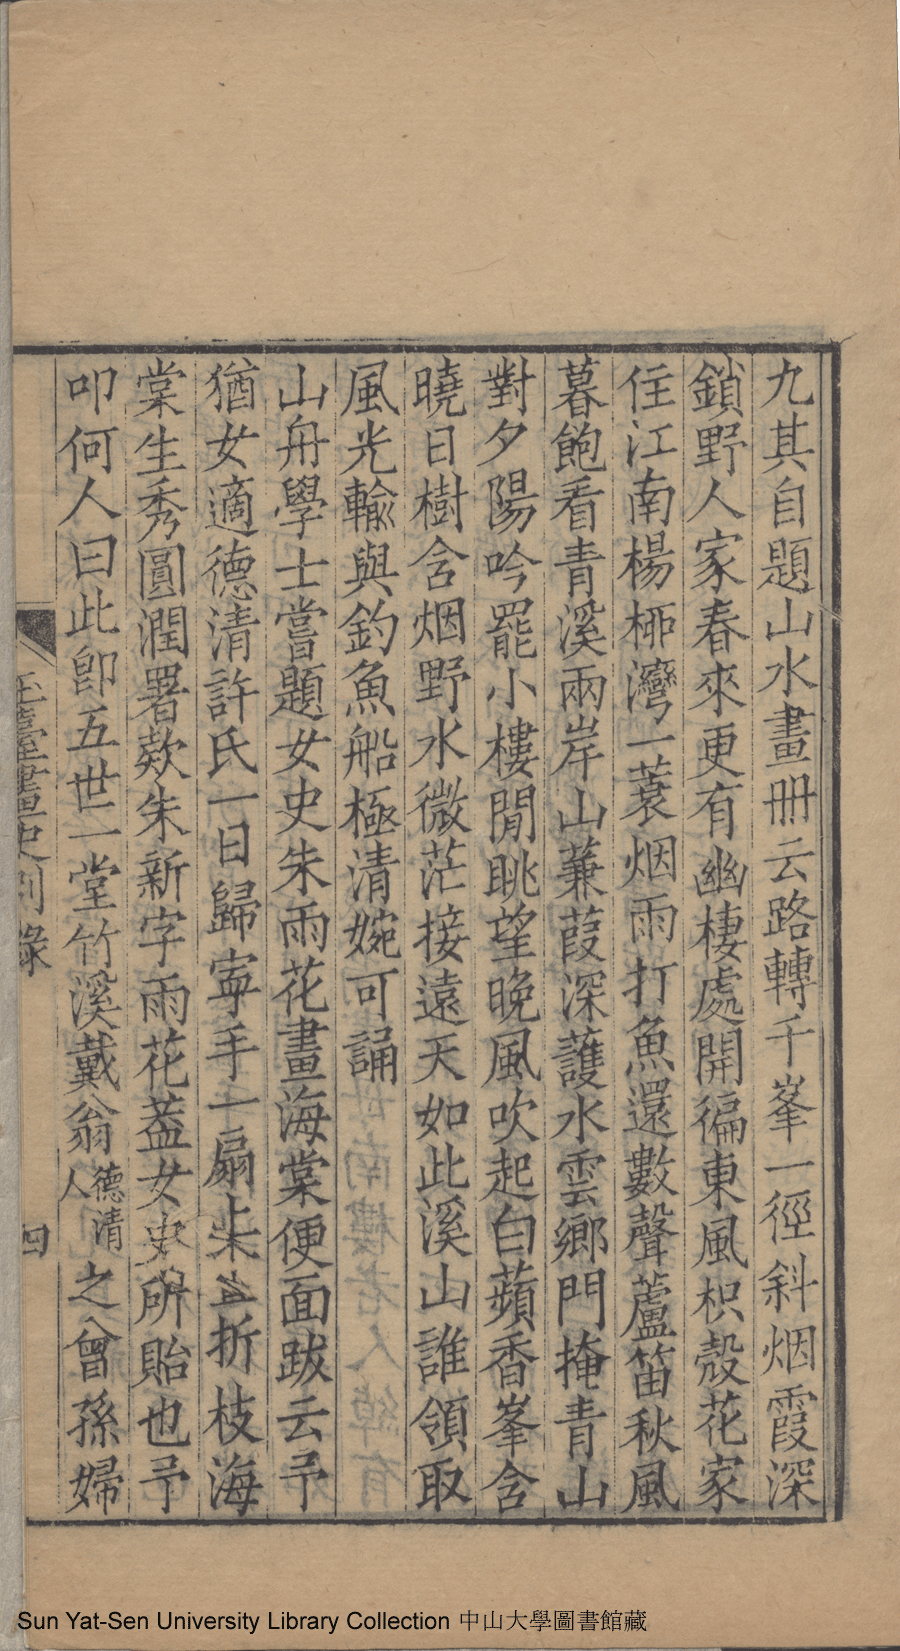 九其自題山水畫冊云路轉千峯一徑斜烟霞深
鎖野人家春來更有幽棲處開徧東風枳殼花家
住江南楊栁灣一蓑烟雨打魚還數聲蘆笛秋風
暮飽看青溪兩岸山蒹葭深護水雲鄉門掩青山
對夕陽吟罷小樓閒眺望晚風吹起白蘋香峯含
曉日樹含烟野水微茫接遠天如此溪山誰領取
風光輸與釣魚船極清婉可誦
山舟學士嘗題女史朱雨花畫海棠便面跋云予
猶女適德清許氏一日歸寧手一扇上朱畫折枝海
棠生秀圓潤署欵朱新字雨花葢女史所貽也予
叩何人曰此卽五世一堂竹溪戴翁德清人之曾孫婦
玉臺畫史別錄
四
Sun Yat-Sen University Library Collection 中山大學圖書館藏